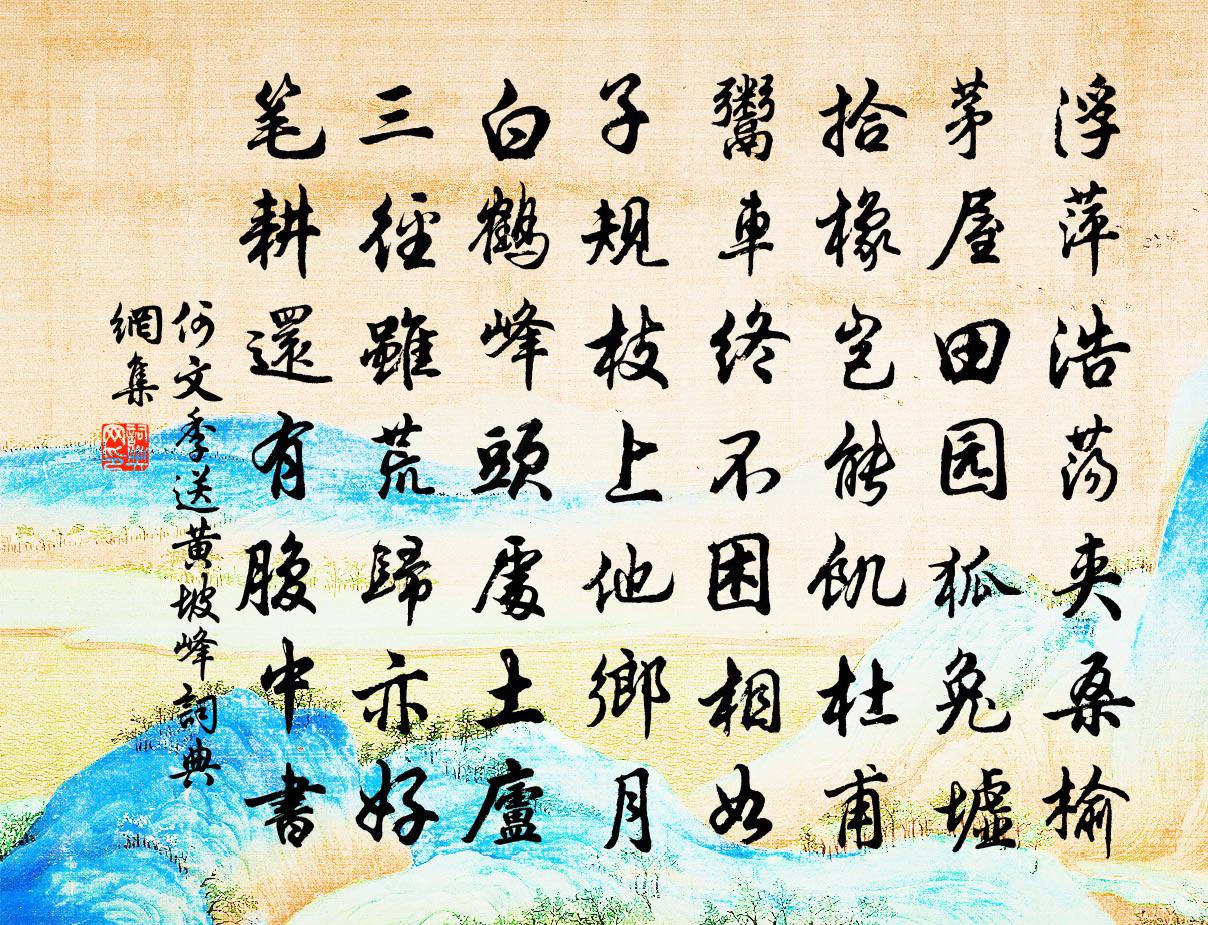 浮萍浩荡夹桑榆
茅屋田园狐兔墟
拾橡岂能飢杜甫
鬻車终不困相如
子规枝上他鄉月
白鶴峰頭處土廬
三徑雖荒歸亦好
笔耕還有腹中書
何文季送黄坡峰詞典
網集